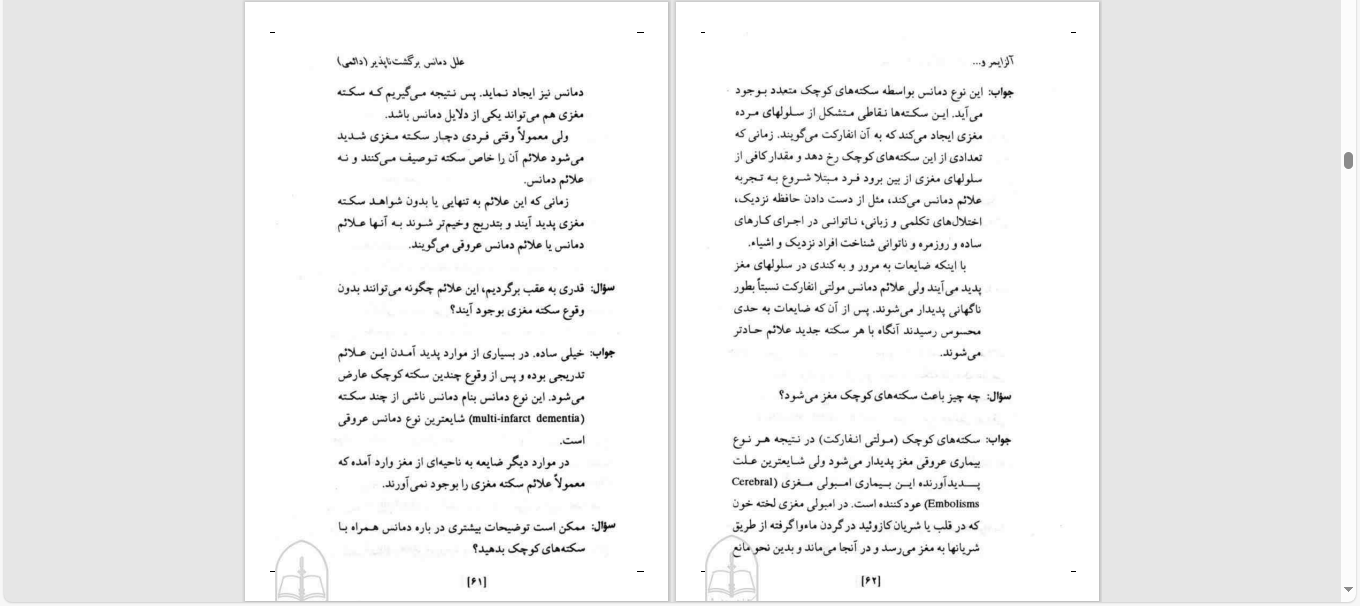 علل دمانس برگشت‌ناپذیر (دائمی)
دمانس نیز ایجاد نماید. پس نتیجه می‌گیریم که سکته
مغزی هم می‌تواند یکی از دلایل دمانس باشد.
ولی معمولاً وقتی فردی دچار سکته مغزی شدید
می‌شود علائم آن را خاص سکته توصیف می‌کنند و نه
علائم دمانس.
زمانی که این علائم به تنهایی یا بدون شواهد سکته
مغزی پدید آیند و بتدریج وخیم‌تر شوند به آنها علائم
دمانس یا علائم دمانس عروقی می‌گویند.
سؤال: قدری به عقب برگردیم، این علائم چگونه می‌توانند بدون
وقوع سکته مغزی بوجود آیند؟
جواب: خیلی ساده. در بسیاری از موارد پدید آمدن این علائم
تدریجی بوده و پس از وقوع چندین سکته کوچک عارض
می‌شود. این نوع دمانس بنام دمانس ناشی از چند سکته
(multi-infarct dementia) شایعترین نوع دمانس عروقی
است.
در موارد دیگر ضایعه به ناحیه‌ای از مغز وارد آمده که
معمولاً علائم سکته مغزی را بوجود نمی‌آورند.
سؤال: ممکن است توضیحات بیشتری در باره دمانس همراه با
سکته‌های کوچک بدهید؟
[۶۱]
آلزایمر و...
جواب: این نوع دمانس بواسطه سکته‌های کوچک متعدد بوجود
می‌آید. این سکته‌ها نقاطی متشکل از سلولهای مرده
مغزی ایجاد می‌کند که به آن انفارکت می‌گویند. زمانی که
تعدادی از این سکته‌های کوچک رخ دهد و مقدار کافی از
سلولهای مغزی از بین برود فرد مبتلا شروع به تجربه
علائم دمانس می‌کند، مثل از دست دادن حافظه نزدیک،
اختلال‌های تکلمی و زبانی، ناتوانی در اجرای کارهای
ساده و روزمره و ناتوانی شناخت افراد نزدیک و اشیاء.
با اینکه ضایعات به مرور و به کندی در سلولهای مغز
پدید می‌آیند ولی علائم دمانس مولتی انفارکت نسبتاً بطور
ناگهانی پدیدار می‌شوند. پس از آن که ضایعات به حدی
محسوس رسیدند آنگاه با هر سکته جدید علائم حادتر
می‌شوند.
سؤال: چه چیز باعث سکته‌های کوچک مغز می‌شود؟
جواب: سکته‌های کوچک (مولتی انفارکت) در نتیجه هر نوع
بیماری عروقی مغز پدیدار می‌شود ولی شایعترین علت
پدیدآورنده این بیماری امبولی مغزی (Cerebral
Embolisms) عود کننده است. در امبولی مغزی لخته خون
که در قلب یا شریان کازوئید در گردن ماءوا گرفته از طریق
شریانها به مغز می‌رسد و در آنجا می‌ماند و بدین نحو مانع
[۶۲]